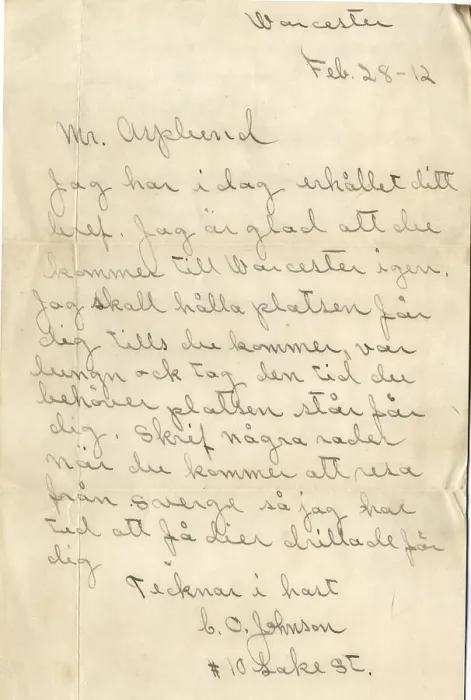 Worcester
Feb. 28-12
Mr. Asplund
Jag har i dag erhållet ditt
bref. Jag är glad att du
kommer till Worcester igen.
Jag skall hålla platsen för
dig tills du kommer, var
lungn ock tag den tid du
behöver platsen står för
dig. Skrif några rader
när du kommer att resa
från Sverge så jag har
tid att få dier drillade för
dig
Tecknar i hast
C. O. Johnson
# 10 Lake St.